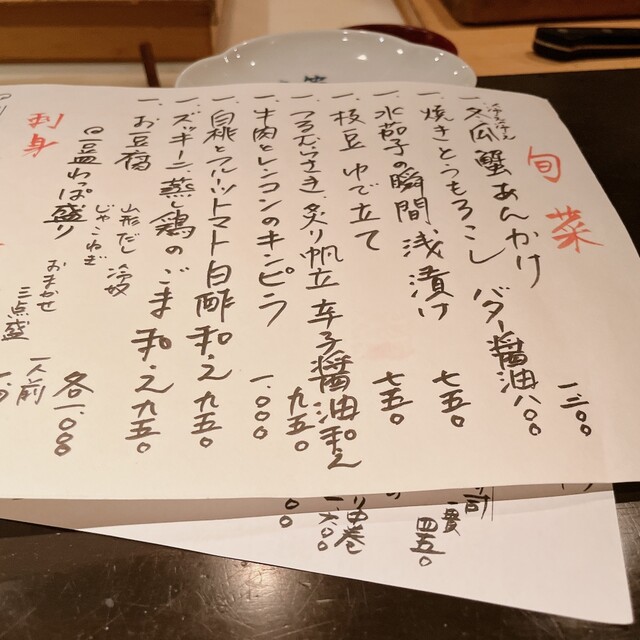 旬菜
一、冬瓜 蟹あんかけ 一二〇〇
一、焼きとうもろこし バター醤油 八〇〇
一、水茄子の瞬間、浅漬け 七五〇
一、枝豆 ゆで立て 七五〇
一、つるむらさき、炙り帆立 辛子醤油和え 九五〇
一、牛肉とレンコンのキンピラ 一.〇〇〇
一、白桃とフルーツトマト白酢和え 九五〇
一、ズッキーニ蒸し鶏のごま和え 九五〇
一、お豆腐 山形だし 冷奴 じゃこねぎ 各一.〇〇〇
刺身
一皿わっぱ盛り おまかせ三点盛 一人前
一貫
四五〇
巻
一六〇〇